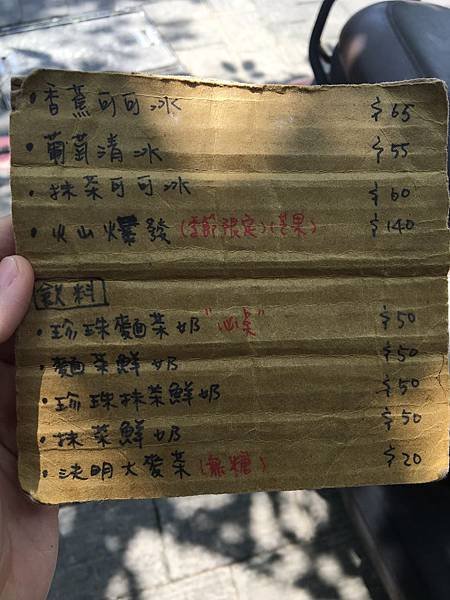 ・香蕉可可冰 $65
・葡萄清冰 $55
・抹茶可可冰 $60
・火山爆發(季節限定)(芒果) $140
飲料
・珍珠麵茶奶"必点" $50
・麵茶鮮奶 $50
・珍珠抹茶鮮奶 $50
・抹茶鮮奶 $50
・決明大麥茶(無糖) $20